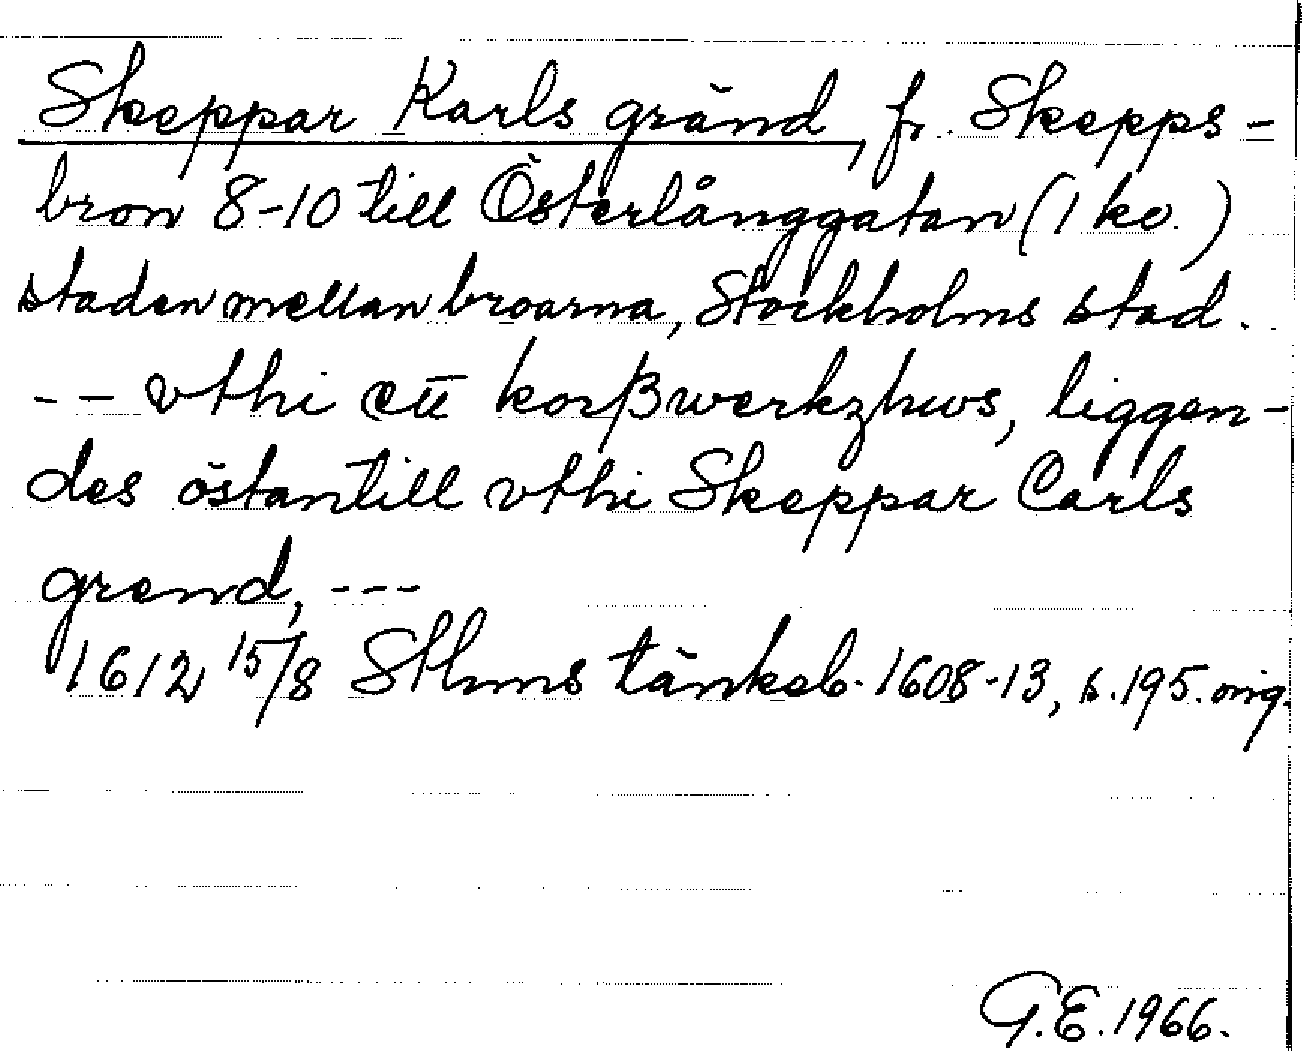 Skeppar Karls gränd, fr. Skepps-
bron 8-10 till Österlånggatan (1 kv.)
staden mellan broarna, Stockholms stad.
-- vthi ett korßwerkzhws, liggen-
des östantill vthi Skeppar Carls
grend, ---
1612 15/8 Sthms tänkeb. 1608-13, s. 195. orig.
G.E. 1966.